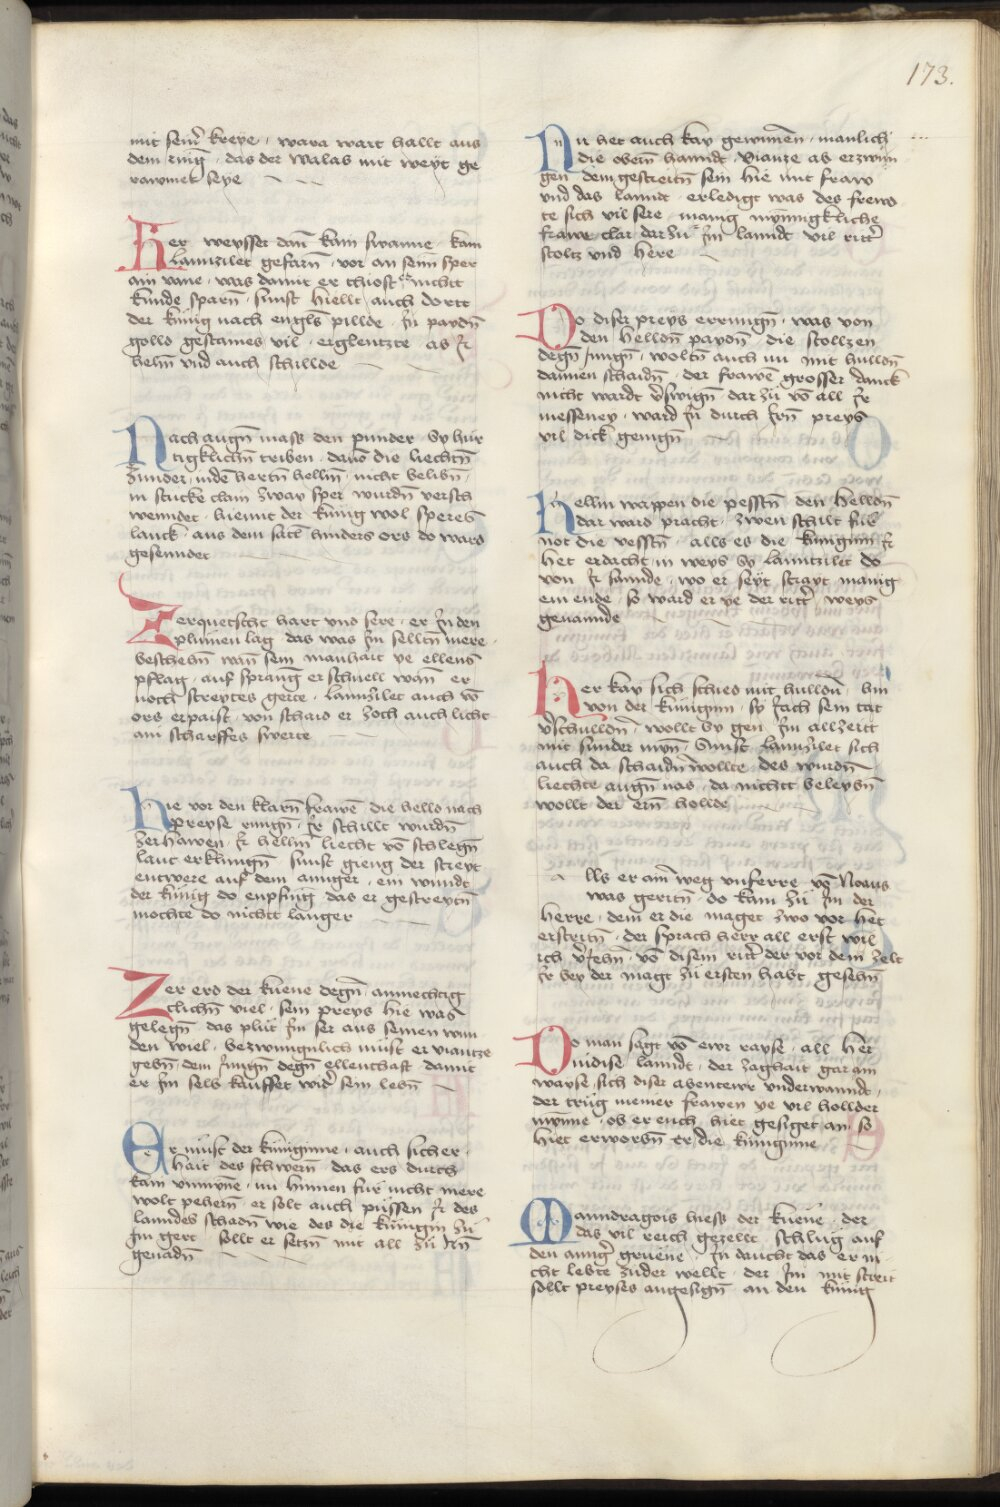 173.
mit sein̄ kreye · wara wart hallt aus
dem ring · das der walas mit weyt ge
rawmet seye
Her weysser dan̄ kain swanne · kam
Lannzilet gefarn̄ · vor an seim sper
ain vane · was damit er thiost nichtt
kunde sparn̄ · sunst hiellt auch dortt
der künig nach engls pillde · jn payd̄n
golld gestaines vil · erglentzte · ab jr
helm̄ vnd auch schillde
Nach augn̄ mass den punder · by hur
tigklichn̄ triben · dauō die liechtn̄
zunder · inde hertn̄ hellm̄ · nicht belibn̄
in stucke clain zway sper wurdn̄ versch
wenndet · hiemit der künig wol speres
lanck · aus dem satl hinders ors do ward
gesenndet
Zerquetscht hart vnd sere · er jn den
plumen lag · das was jm selltn̄ mere
beschehn̄ · wan̄ sein manhait ye ellens
pflag · auf sprang er schnell wan̄ er
noch streytes gerte · Lannzilet auch vō
ors erpaist · von schaid er zoch auch licht
ain scharffes swerte
Hie vor den klarn̄ frawē · die helld nach
preyse rungn̄ · jr schillt wurdn̄
zerhawen · jr hellm̄ liecht vō schlegn̄
laut erklungn̄ · sunst gieng der streyt
entwere auf dem anniger · ein wundt
der künig do enpfing das er gestreytn̄
mochte do nichtt langer
Zer erd der küene degn̄ · amnechtig
clichn̄ viel · sein preys hie was
gelegn̄ · das plüt jm ser aus seinen wun
den wiel · bezwungnlich müst er vianze
gebn̄ · dem jungn̄ degn̄ ellenthaft damit
er jm sels kauffet wid̄ sein lebn̄
Er müst der küniginne · auch sicher
hait des schwern̄ · das ers durch
kain vnmyne · nu hinnen für nicht mere
wolt pehern̄ · er solt auch püssen jr des
lanndes schadn̄ wie des die künigin zu
jm gert · sollt er setzn̄ mit all zü jrn̄
genadn̄
Nu het auch kay gewunnēn · manlich
die obern̄ hanndt · vianze ab erzwun
gen · dem gestreitn̄ sein hie mit fraw
vnd das lanndt · erledigt was des frewd
te sich vil sere · manig mynnigkliche
frawe clar darzü jm lanndt vil ritt̄
stoltz vnd here
Do diser preys errungn̄ · was von
den helldn̄ payd̄n · die stollzen
degn̄ jungn̄ · woltn̄ auch nu mit hulld̄n
dannen schaidn̄ · der frawē grosser danck
nicht wardt v̄swign̄ dar zü vō all jr
messeney · ward jn durch jrn̄ preys
vil dick genign̄
Hellm wappen die pesstn̄ · den helldn̄
dar ward pracht · zwen schilt für
not die vesstn̄ · alls es die künigin jr
het erdacht · in weys by lanntzilet do
von jr sannde · wo er seyt strayt manig
em ende · so ward er ye der ritt̄ weys
genannde
Her kay sich schied mit hulld̄n · hin
von der künigin · sy sach sein tat
v̄schulld̄n · wollt by gen jm allzeitt
mit sunder myn̄ · Sunst Lannzilet sich
auch da schaidn̄ wollte des wurdn̄
liechte augn̄ nas · da nichtt beleybn̄
wollt der ern̄ hollde
Alls er ain̄ weg vnferre · vō Noaus
was geritn̄ · do kam zü jm der
herre · dem er die maget zwo vor het
erstritn̄ · der sprach herr all erst wil
ich v̄jehn̄ · vō disem ritt̄ der vor dem zelt
jr bey der magt zü ersten habt gesehn̄
Do man sagt vō ewr rayse · all her
inidise lanndt · der zaghait gar ain
wayse · sich diser abentewr vnderwanndt
der trüg meiner frawen ye vil hollder
mynne · ob er euch hiet gesiget an so
hiet erworbn̄ er die küniginne
Manndragois hiess der küene · der
das vil reich gezellt · schlug auf
den annḡ grüene · jn daucht das er ni
cht lebte zuder wellt · der jm mit streit
sollt preyses angesign̄ · an den künig